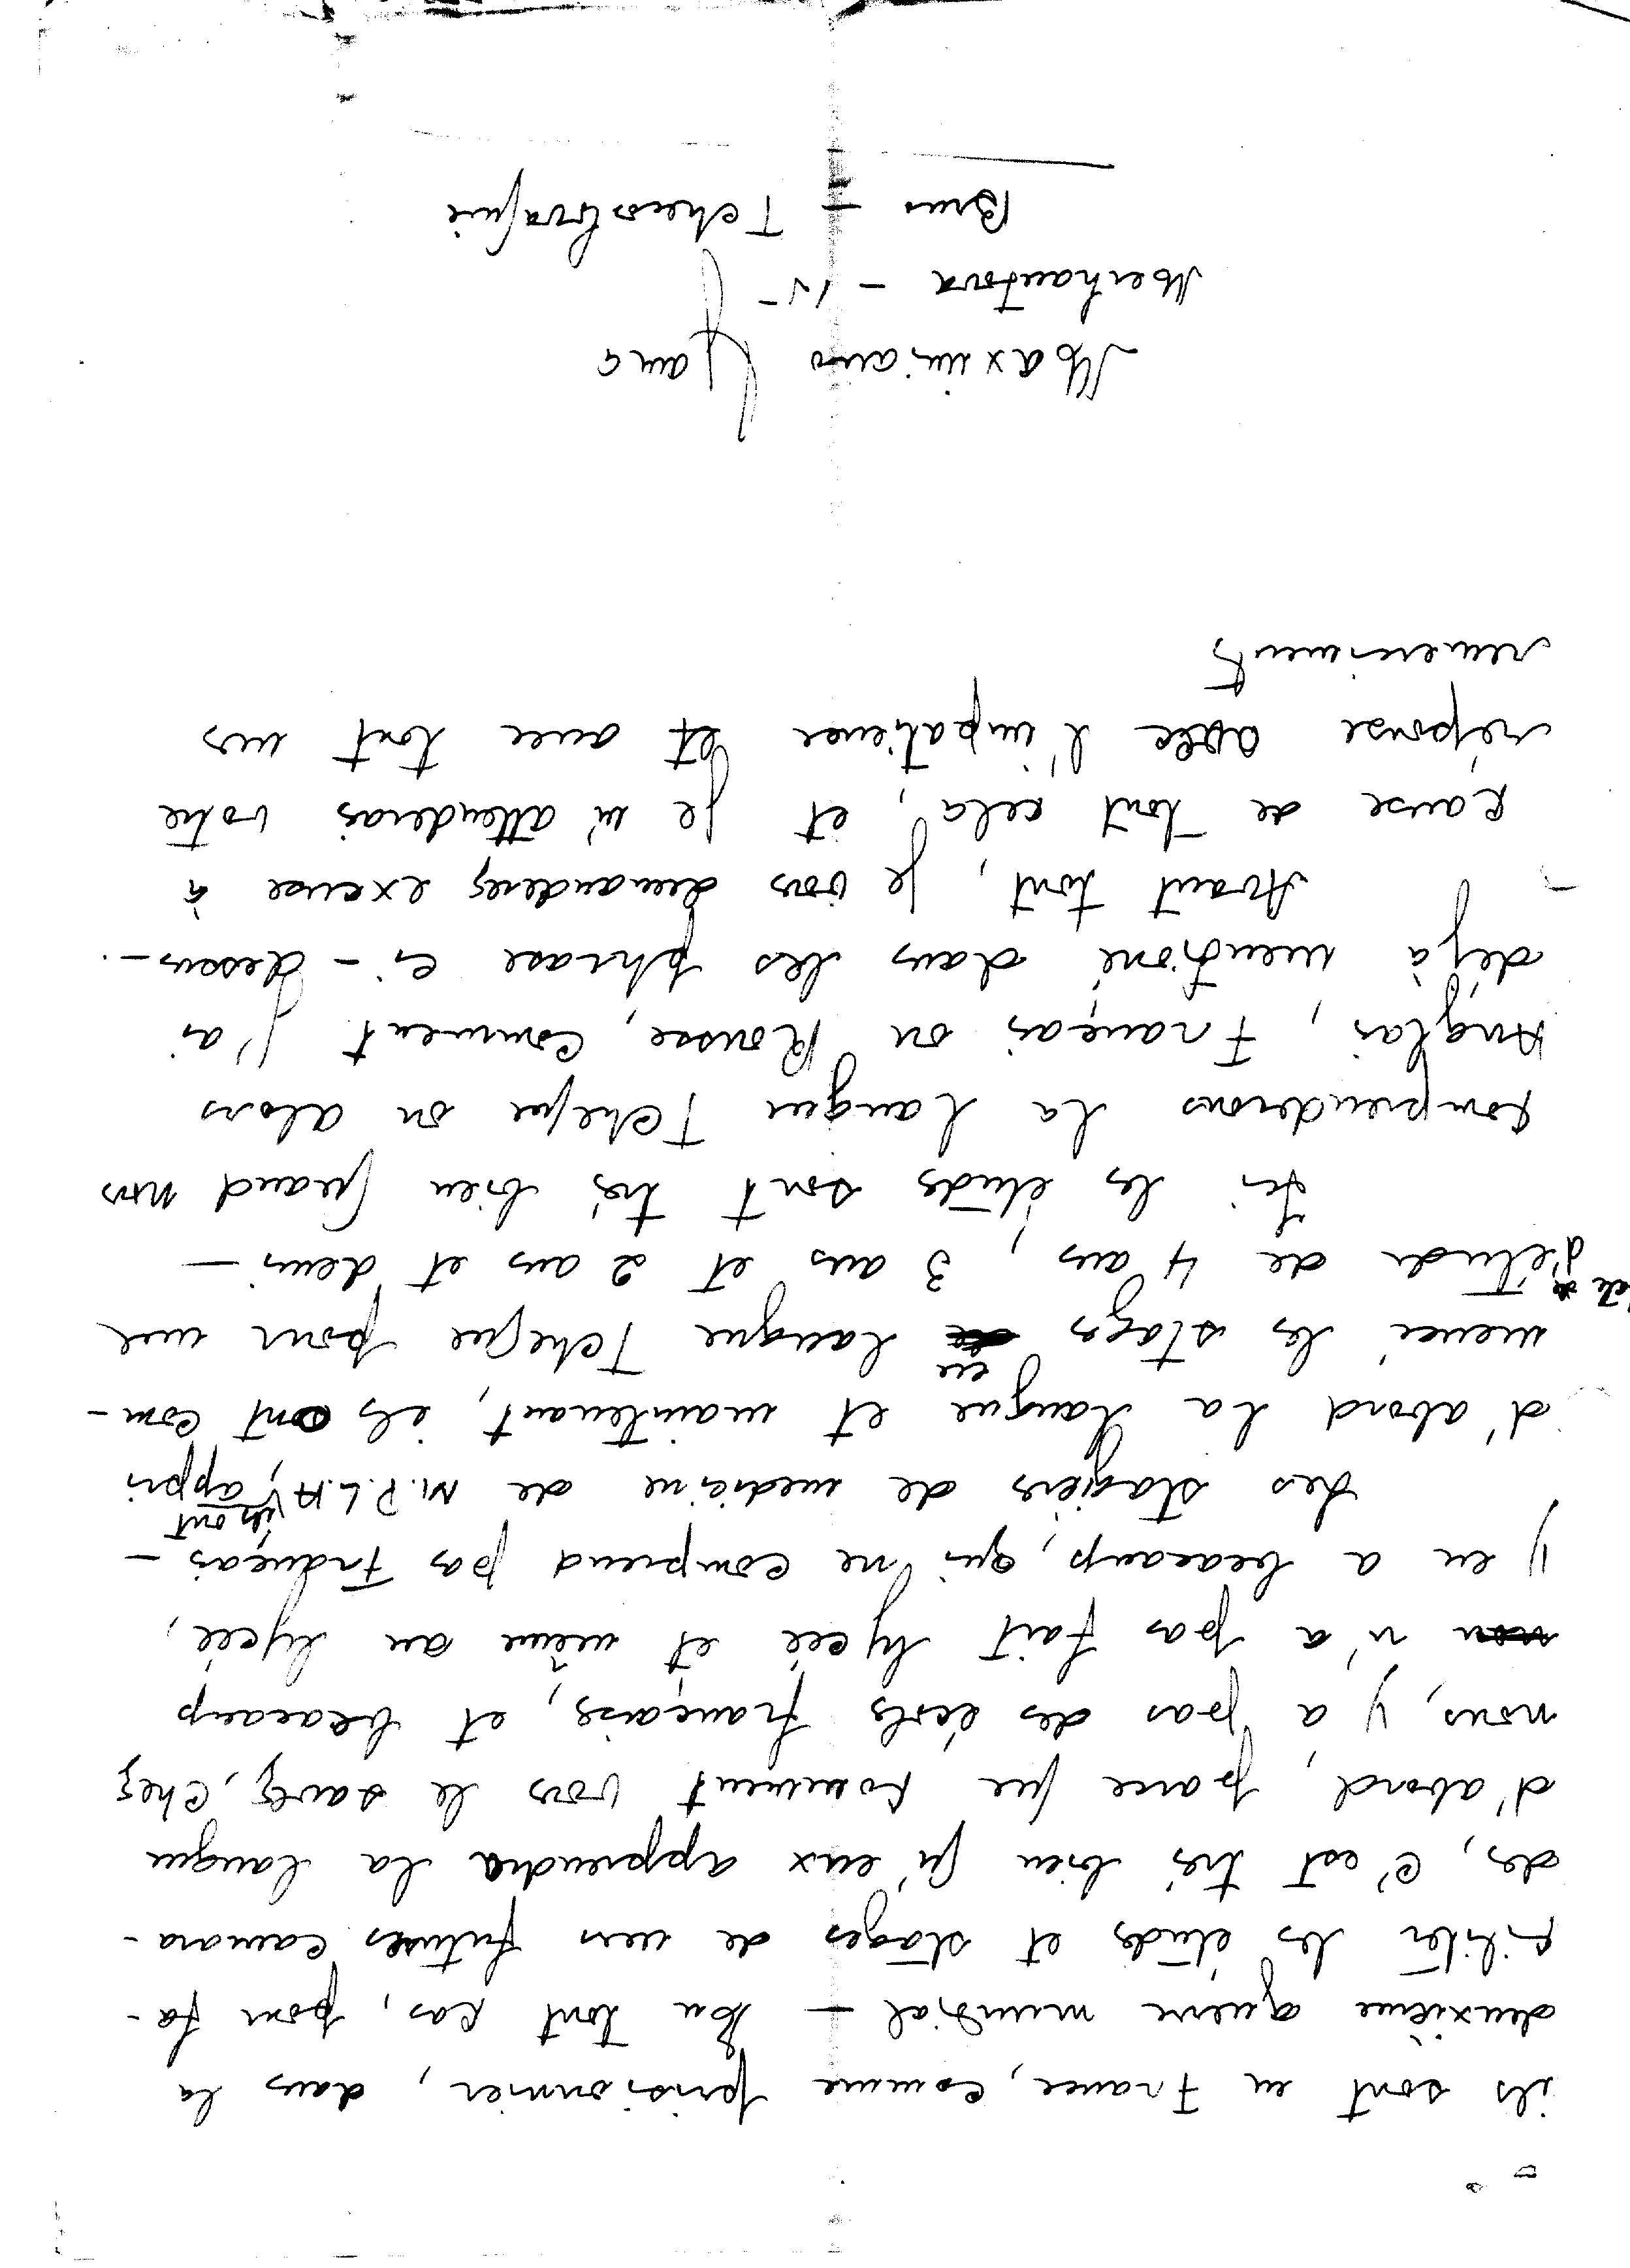 ils sont en France, comme prisionnier, dans la
deuxième guerre mundial — En tout cas, pour fa-
ciliter les études et stages de nos futures camara-
des, c'est trés bien qu'eux apprendra la langue
d'abord, parce que comment vous le savez, chez
nous, y a pas des écols français, et beacaup
n'a pas fait lycée et même au lycée,
y en a beacaup, qui ne comprend pas Français —
Les stagiers de medicine de M.P.L.A, ils ont appri
d'abord la langue et maintenant, ils ont com-
mencé les stages en langue Tcheque pour une
d'étude de 4 ans, 3 ans et 2 ans et demi —
Ici les études sont trés bien quand nous
comprenderons la langue Tcheque ou alors
Anglais, Français ou Rousse, comment j'ai
déjà mentioné dans les phrase ci-dessus —.
Avant tout, je vous demanderez excuse à
cause de tout cela, et je m'attenderais votre
réponse avec l'impatience et avec tout nos
remerciments
Maximiano
Merhautova - 15 -
Brno - Tchecoslovaquie